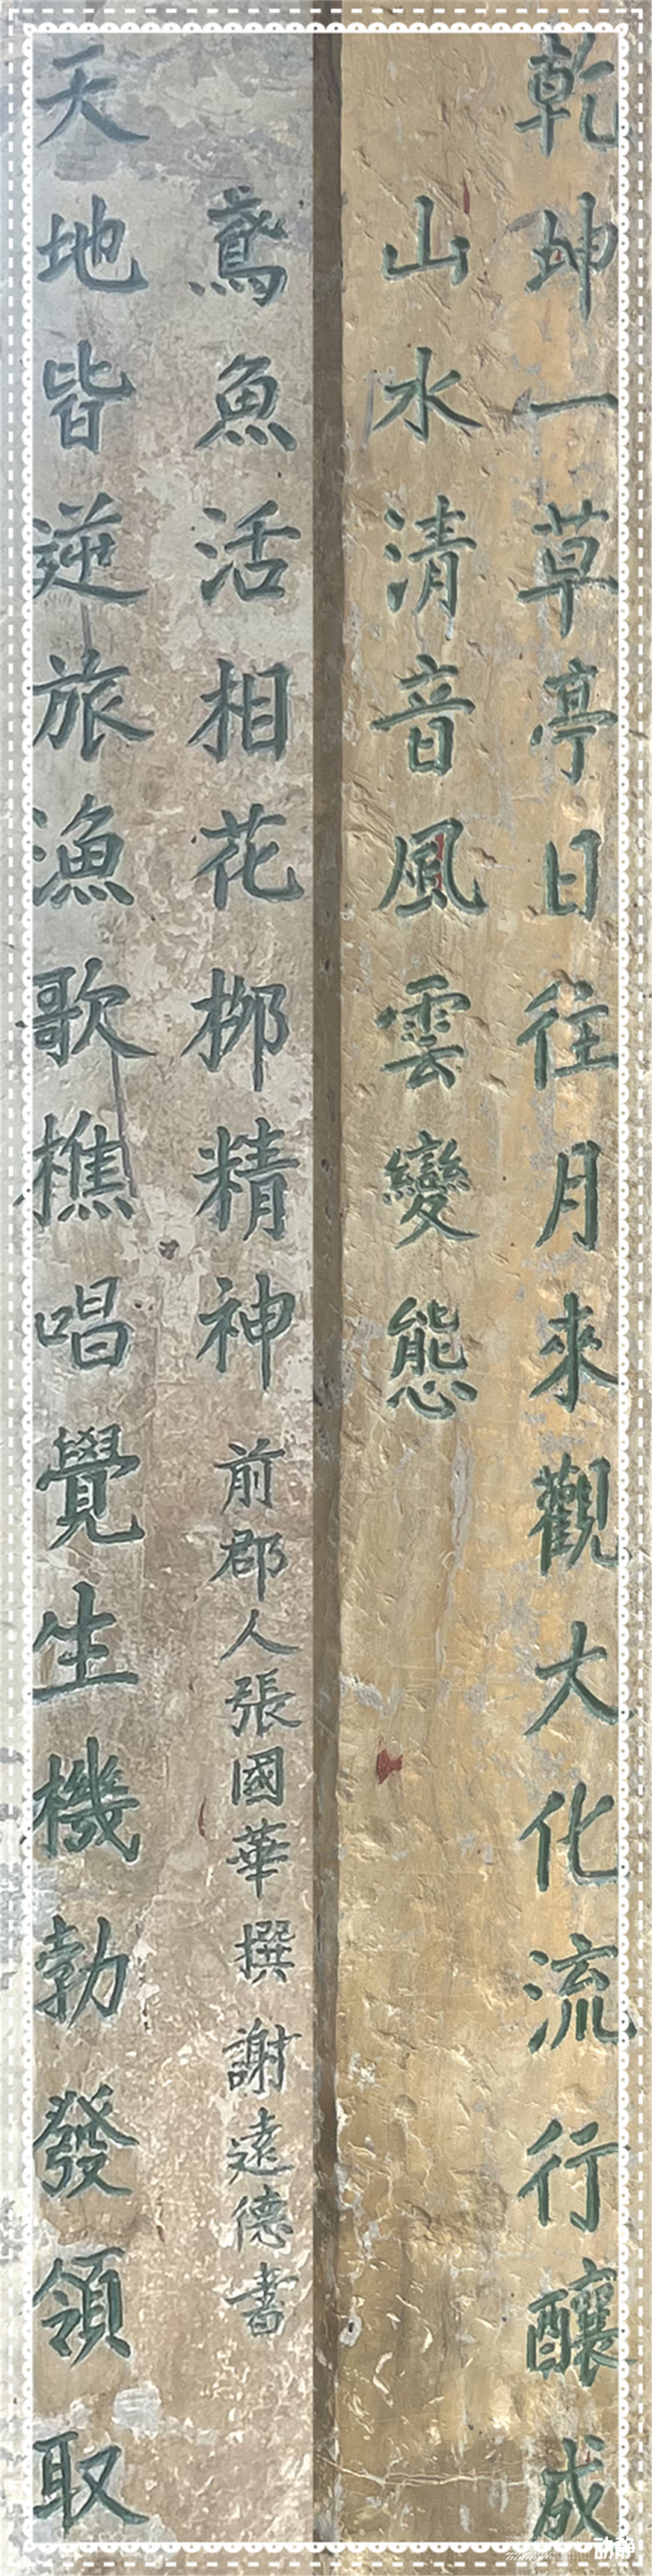 乾坤一草亭日往月來觀大化流行釀成
山水清音風雲變態
天地皆逆旅漁歌樵唱覺生機勃發領取
鳶魚活相花柳精神
前郡人張國華撰 謝遠德書
动静